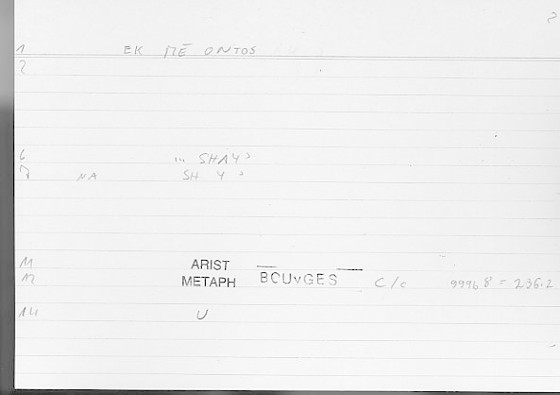 2
1 EK MĒ ONTOS
2
6 ... SHAY'
7 NA SH Y '
11 ARIST
12 METAPH BOUvGES C/c 999b 8 = 236.2
14 U